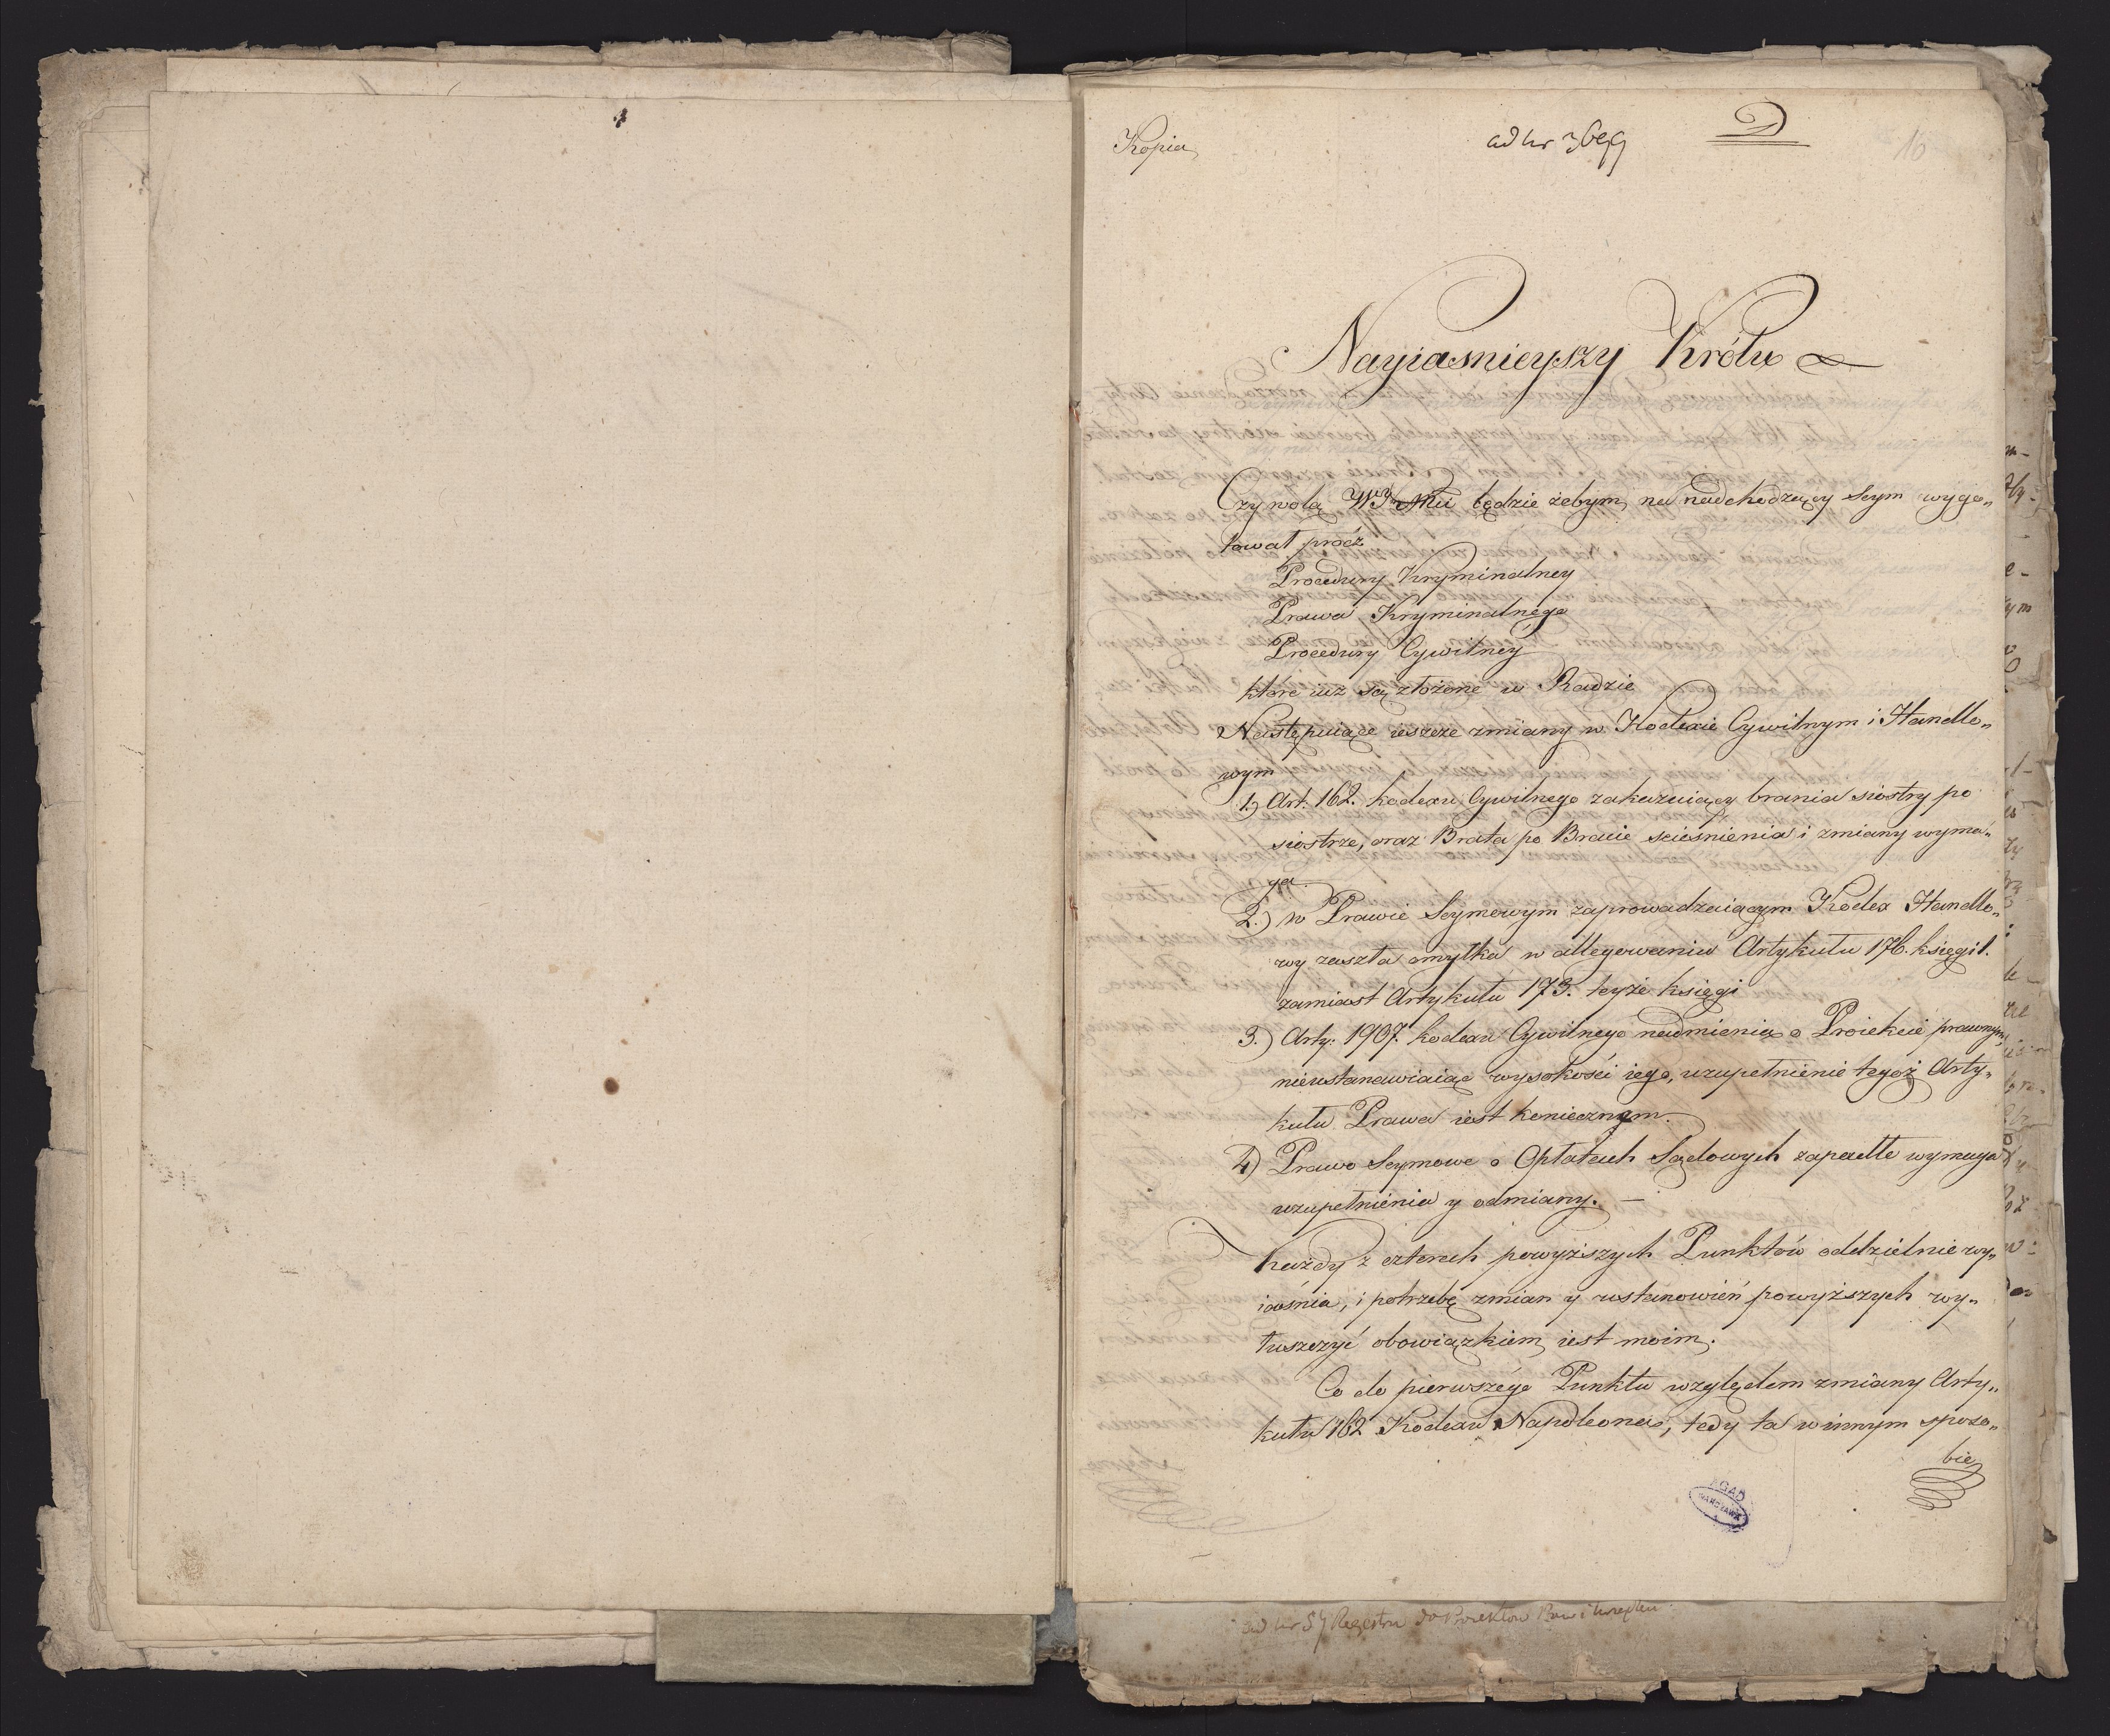 Kopia
ad nr 3699
D
16
Nayiasnieyszy Królu
Czy wolą WKMci będzie żebym na nadchodzący Seym wygo„
tował prócz
Procedury Kryminalney
Prawa Kryminalnego
Procedury Cywilney
które iuż są złożone w Radzie
Następuiące ieszcze zmiany w Kodexie Cywilnym i Handlo„
wym
1.) Art. 162. kodexu Cywilnego zakazuiący brania siostry po
siostrze, oraz Brata po Bracie scieśnienia i zmiany wyma„
ga.
2.) w Prawie Seymowym zaprowadzaiącym Kodex Handlo„
wy zaszła omyłka w allegowaniu Artykułu 176. księgi 1.
zamiast Artykułu 173. teyże księgi
3.) Arty: 1907. kodexu Cywilnego nadmienia o Proiekcie prawnym,
nieustanawiaiąc wysokości iego, uzupełnienie tegoż Arty„
kułu Prawa iest koniecznym.
4) Prawo Seymowe o Opłatach Sądowych zapadłe wymaga
uzupełnienia y odmiany. —
Każdy z czterech powyższych Punktów oddzielnie wy„
iaśnia, i potrzebę zmian y ustanowień powyższych wy„
łuszczyć obowiązkiem iest moim.
Co do pierwszego Punktu względem zmiany Arty„
kułu 162 Kodexu Napoleona, tedy ta w innym sposo„
bie
AGAD
WARSZAWA
ad nr 57 Regestru do Proiektow Praw i Urządzeń